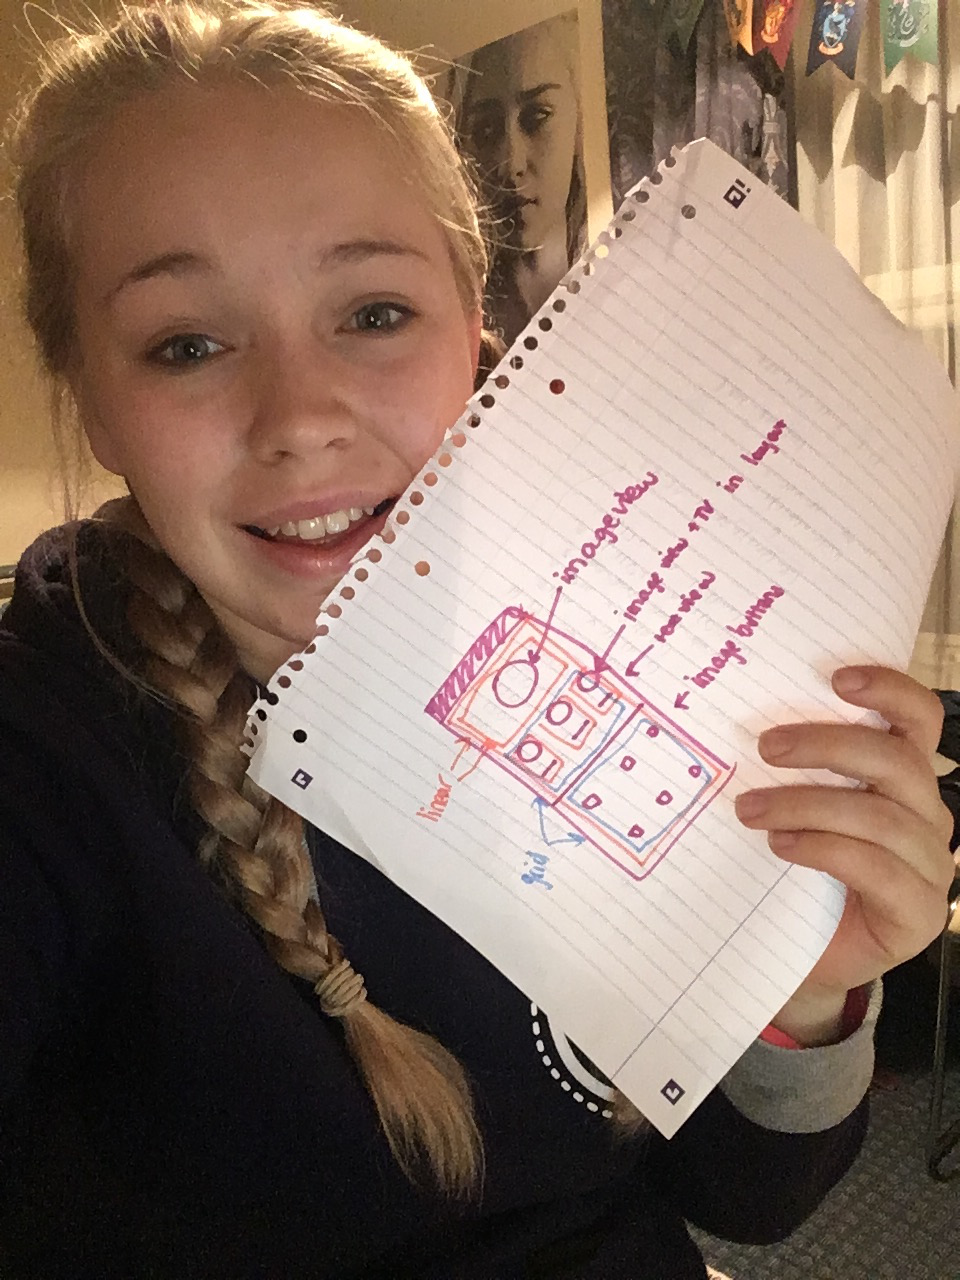 imageview
image view + TV in layer
row view
image buttons
linear
grid